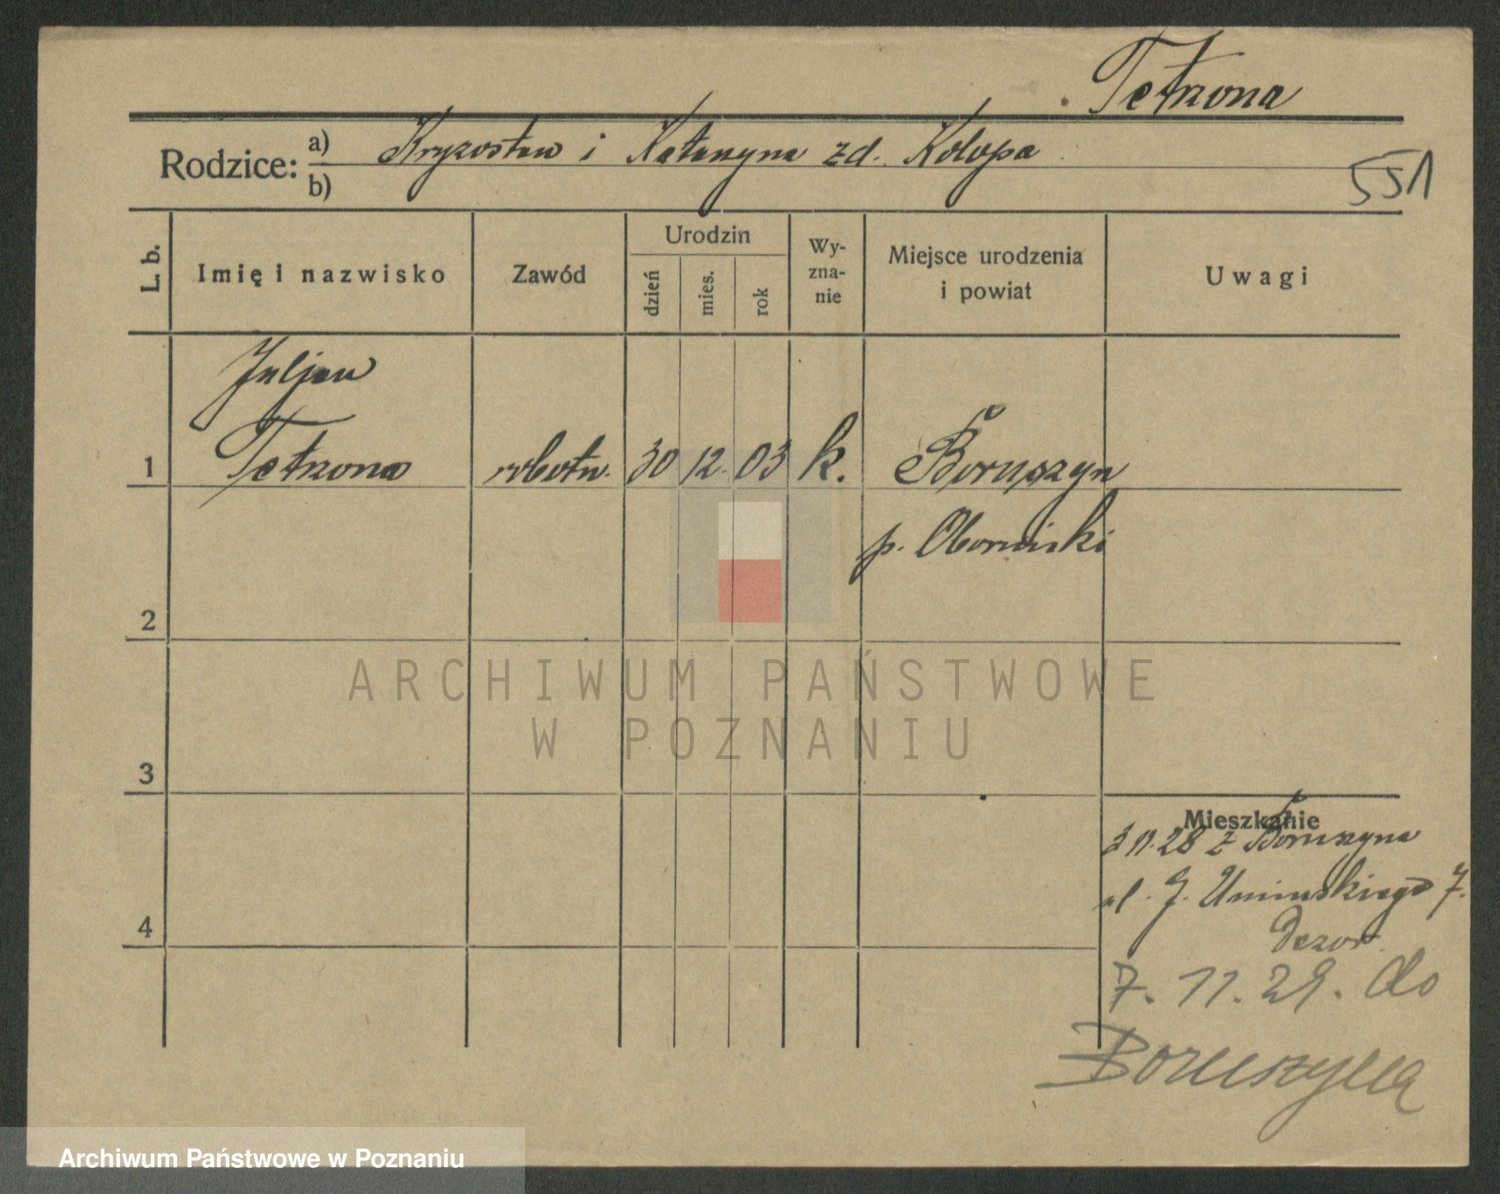 Tetrzona
Rodzice: a) Kryzostaw i Katarzyna zd. Kolopa
b)
551
L. b. Imię i nazwisko Zawód Urodzin dzień mies. rok Wy-zna-nie Miejsce urodzenia i powiat Uwagi
Juljan
1 Tetrzona robotn. 30 12. 03 k. Boruszyn
p. Obornicki
2
ARCHIWUM PAŃSTWOWE
W POZNANIU
3
Mieszkanie
3 11.28 z Boruszyna
ul. J. Umińskiego 7.
Dozor.
4
7. 11. 29. do
Boruszyna
Archiwum Państwowe w Poznaniu